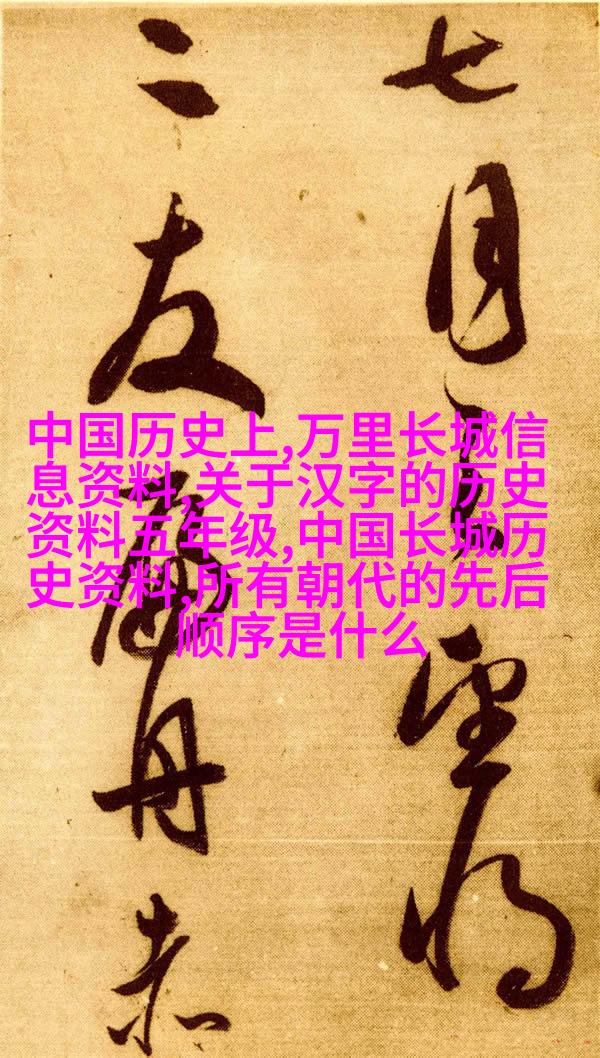 中国历史上,万里长城信
息资料,关于汉字的历史
资料五年级,中国长城历
史资料,所有朝代的先后
顺序是什么
七月望
二友丹赤